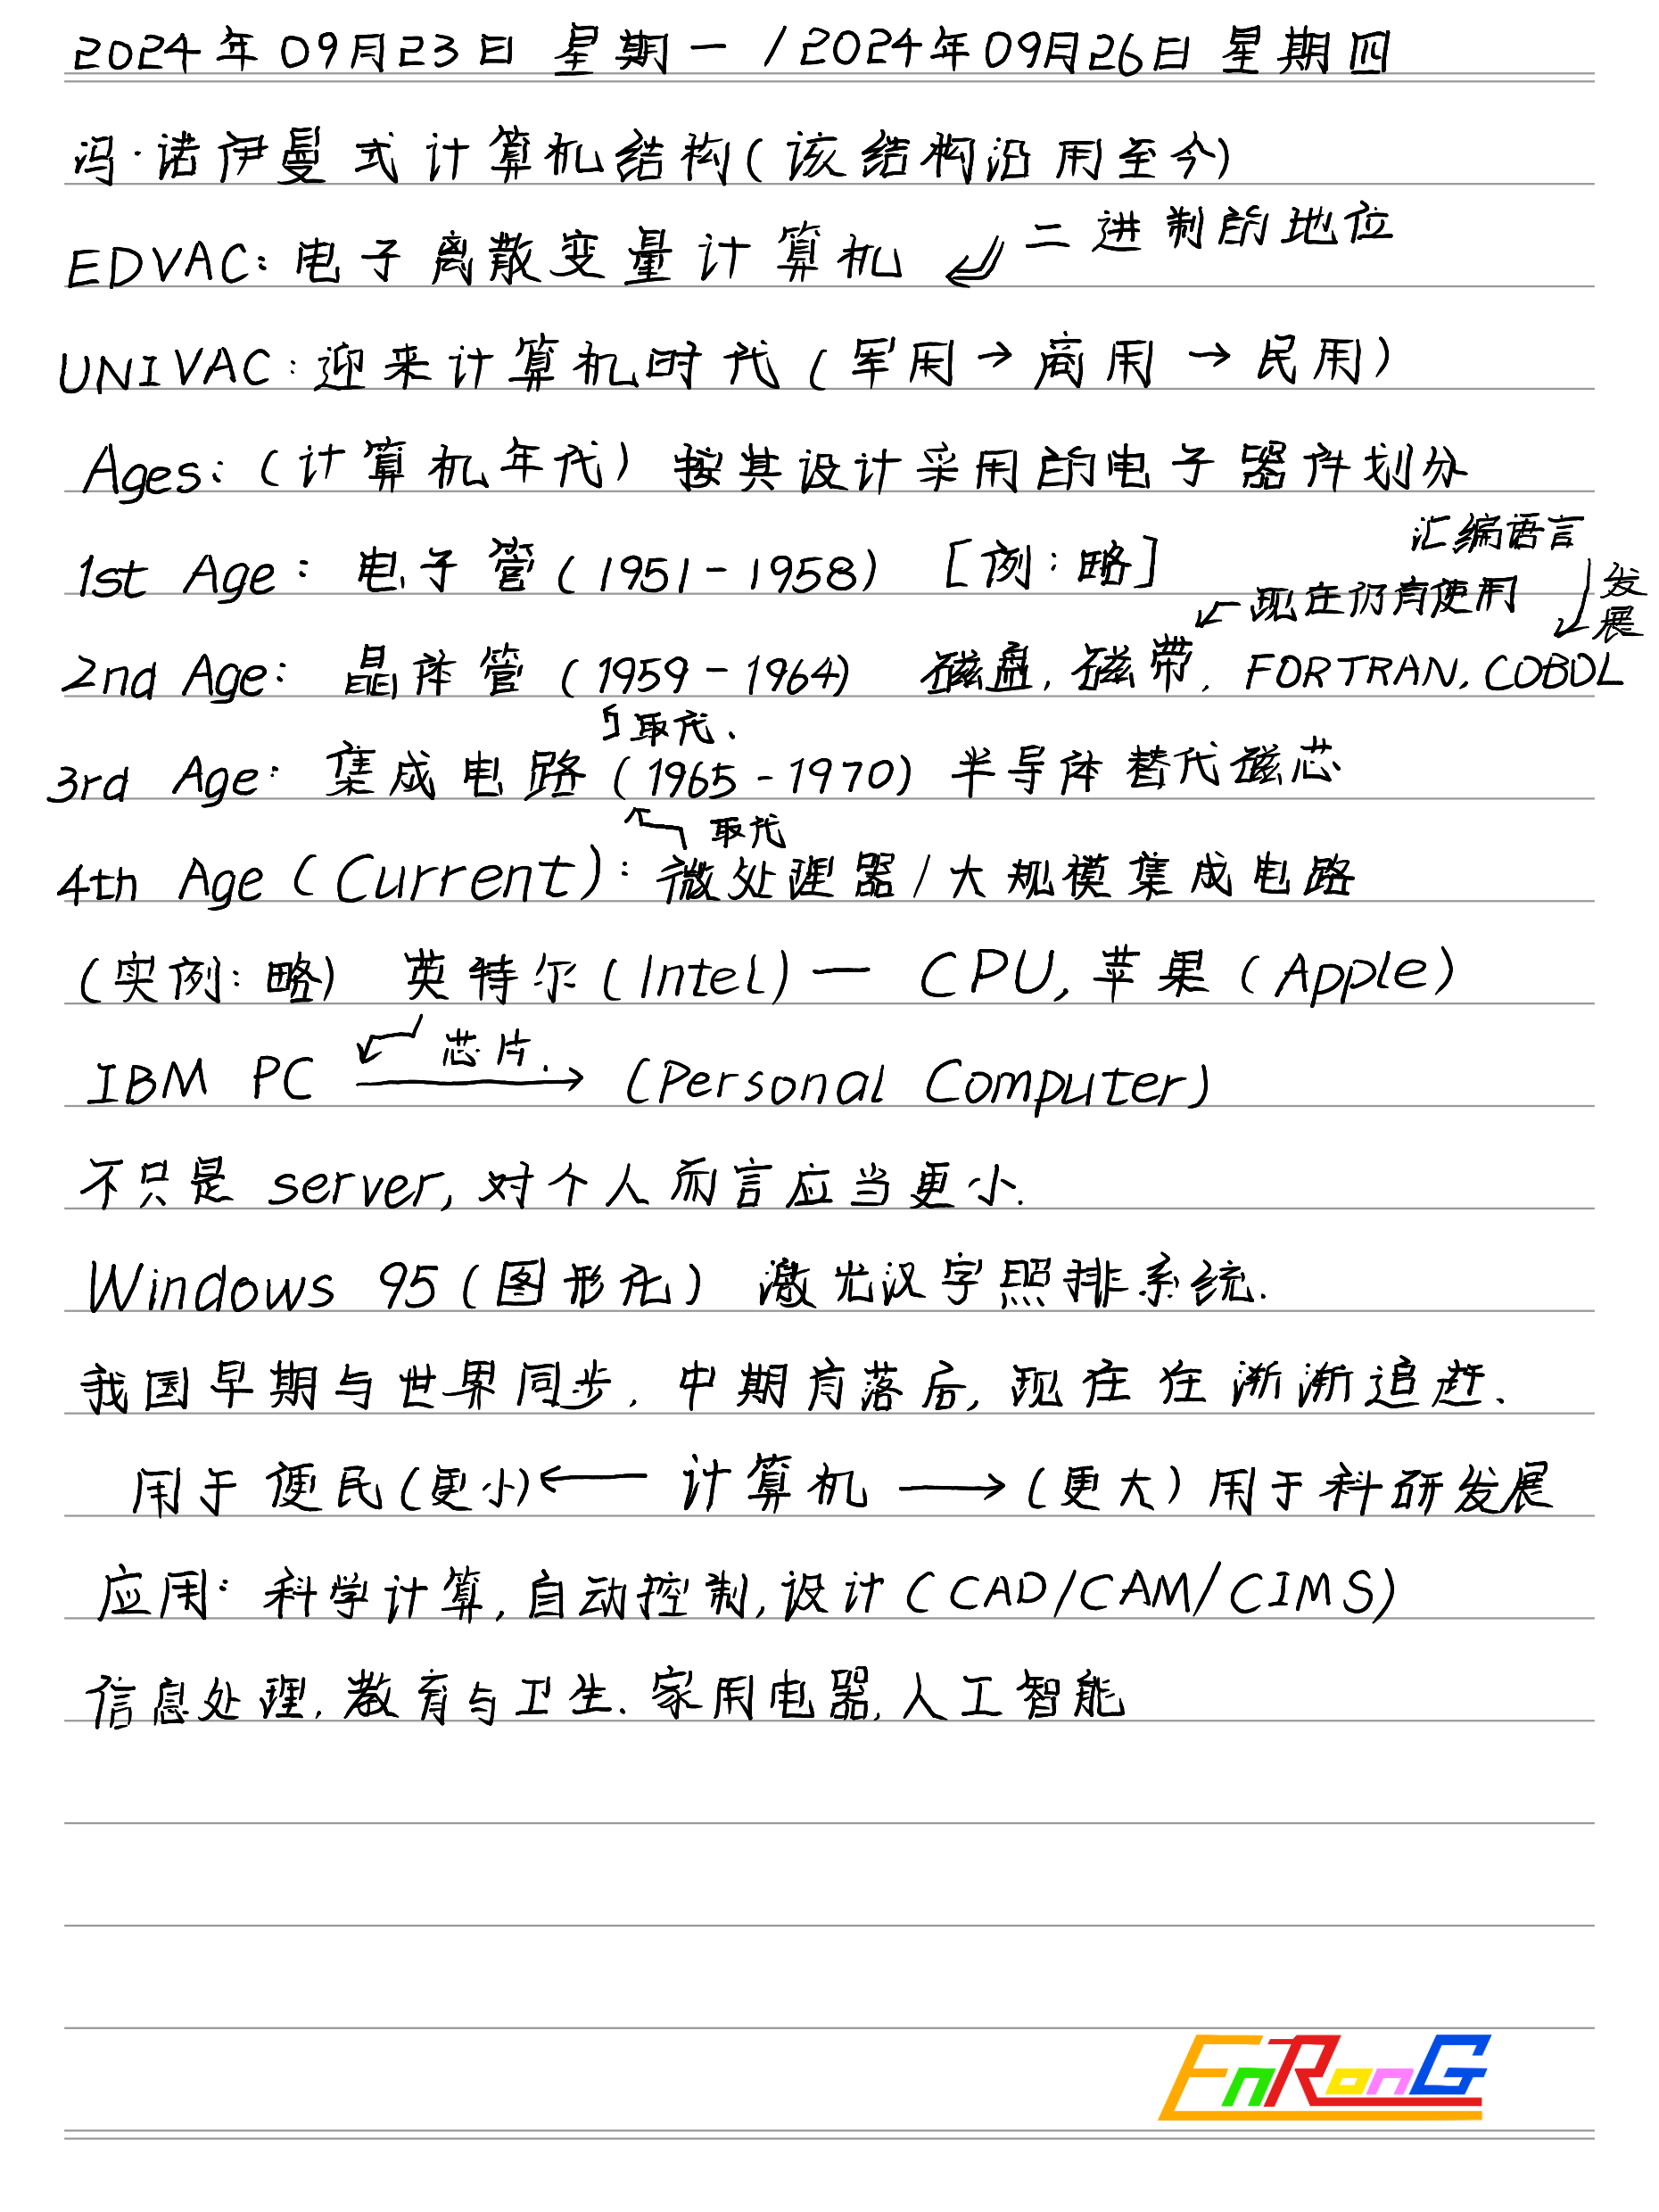 2024年09月23日 星期一 / 2024年09月26日 星期四
冯·诺伊曼式计算机结构(该结构沿用至今)
EDVAC: 电子离散变量计算机 ⇙ 二进制的地位
UNIVAC: 迎来计算机时代 (军用→商用→民用)
Ages: (计算机年代) 按其设计采用的电子器件划分
汇编语言
1st Age: 电子管 (1951-1958) [例:略]
← 现在仍有使用 发展
2nd Age: 晶体管 (1959-1964) 磁盘, 磁带, FORTRAN, COBOL
取代.
3rd Age: 集成电路 (1965-1970) 半导体替代磁芯
取代
4th Age (Current): 微处理器/大规模集成电路
(实例:略) 英特尔(Intel)— CPU, 苹果 (Apple)
芯片.
IBM PC → (Personal Computer)
不只是 server, 对个人而言应当更小.
Windows 95 (图形化) 激光汉字照排系统.
我国早期与世界同步, 中期有落后, 现在在渐渐追赶.
用于便民(更小) ← 计算机 → (更大) 用于科研发展
应用: 科学计算, 自动控制, 设计 (CAD/CAM/CIMS)
信息处理, 教育与卫生, 家用电器, 人工智能
EnRonG